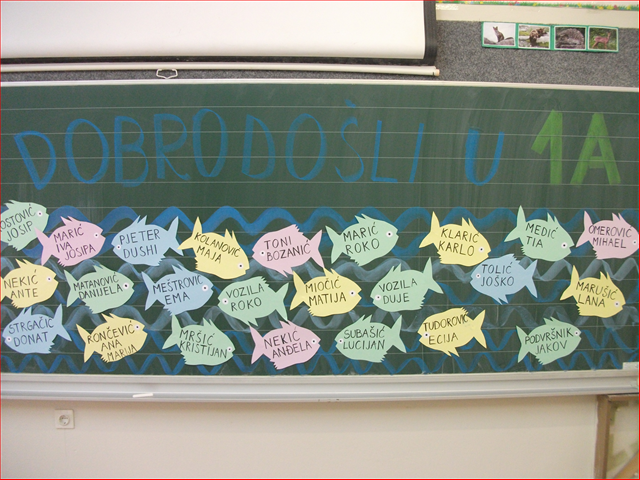 DOBRODOŠLI U 1A
OSTOVIĆ
JOSIP
MARIĆ
IVA
JOSIPA
PJETER
DUSHI
KOLANOVIĆ
MAJA
TONI
BOZANIĆ
MARIĆ
ROKO
KLARIĆ
KARLO
MEDIĆ
TIA
OMEROVIĆ
MIHAEL
NEKIĆ
ANTE
MATANOVIĆ
DANIJELA
MEŠTROVIĆ
EMA
VOZILA
ROKO
MIOČIĆ
MATIJA
VOZILA
DUJE
TOLIĆ
JOŠKO
MARUŠIĆ
LANA
STRGAČIĆ
DONAT
RONČEVIĆ
ANA
MARIJA
MRŠIĆ
KRISTIJAN
NEKIĆ
ANĐELA
SUBAŠIĆ
LUCIJAN
TUDOROVIĆ
ECIJA
PODVRŠNIK
JAKOV